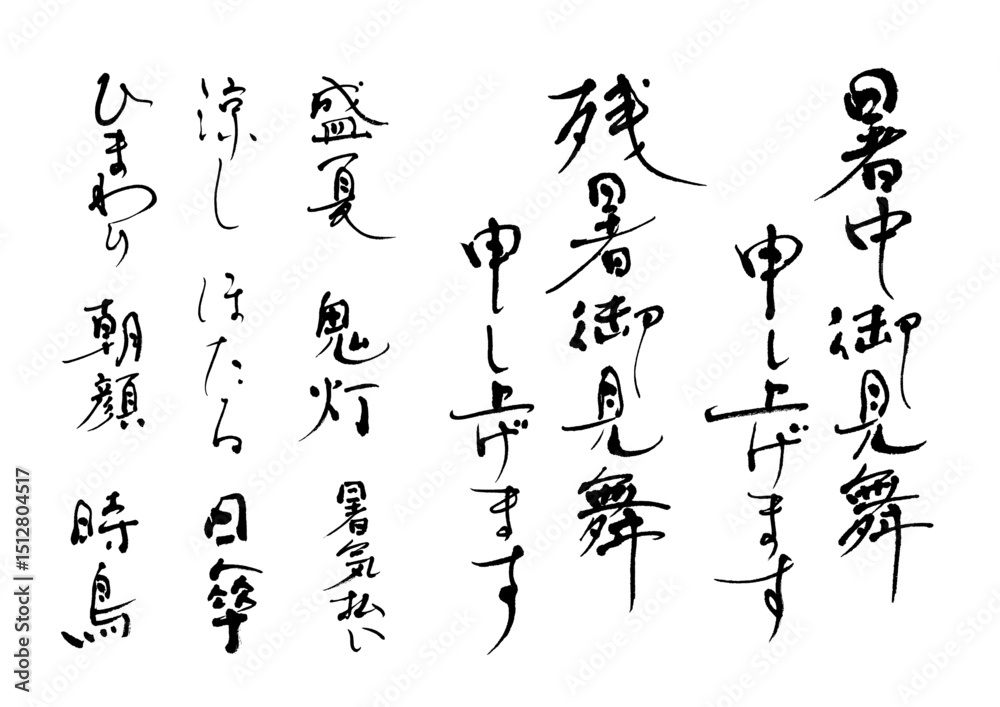 暑中御見舞
申し上げます
残暑御見舞
申し上げます
盛夏
鬼灯
暑気払い
涼し
ほたる
日傘
ひまわり
朝顔
時鳥
Adobe Stock | #1512804517